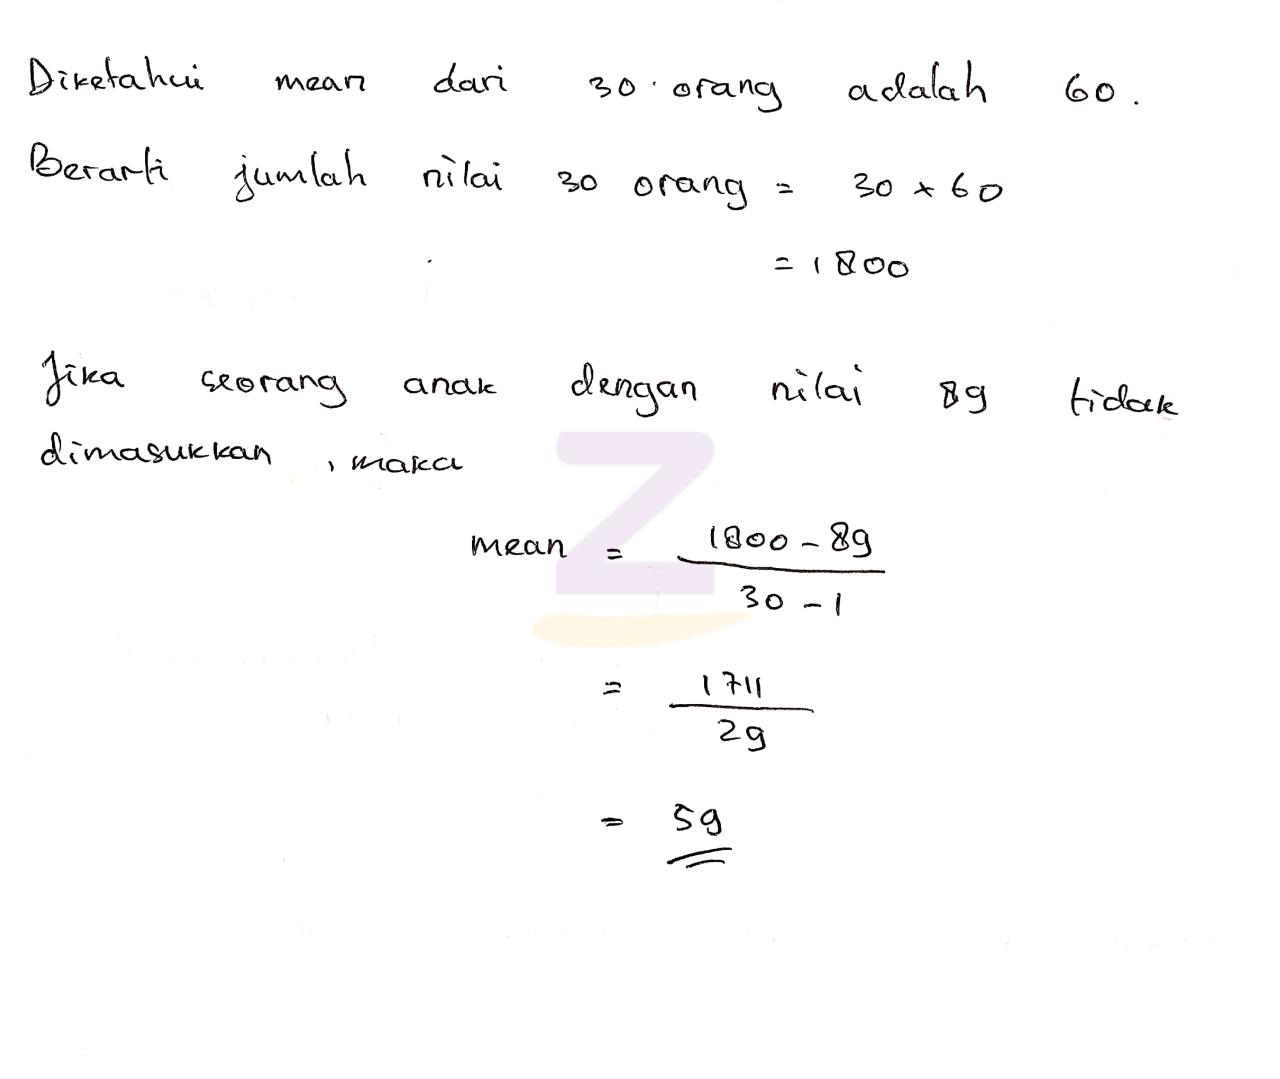 Diketahui mean dari 30 orang adalah 60.
Berarti jumlah nilai 30 orang = 30 × 60
= 1800
Jika seorang anak dengan nilai 89 tidak
dimasukkan, maka
mean = 1800 - 89
30 - 1
= 1711
29
= 59
Z